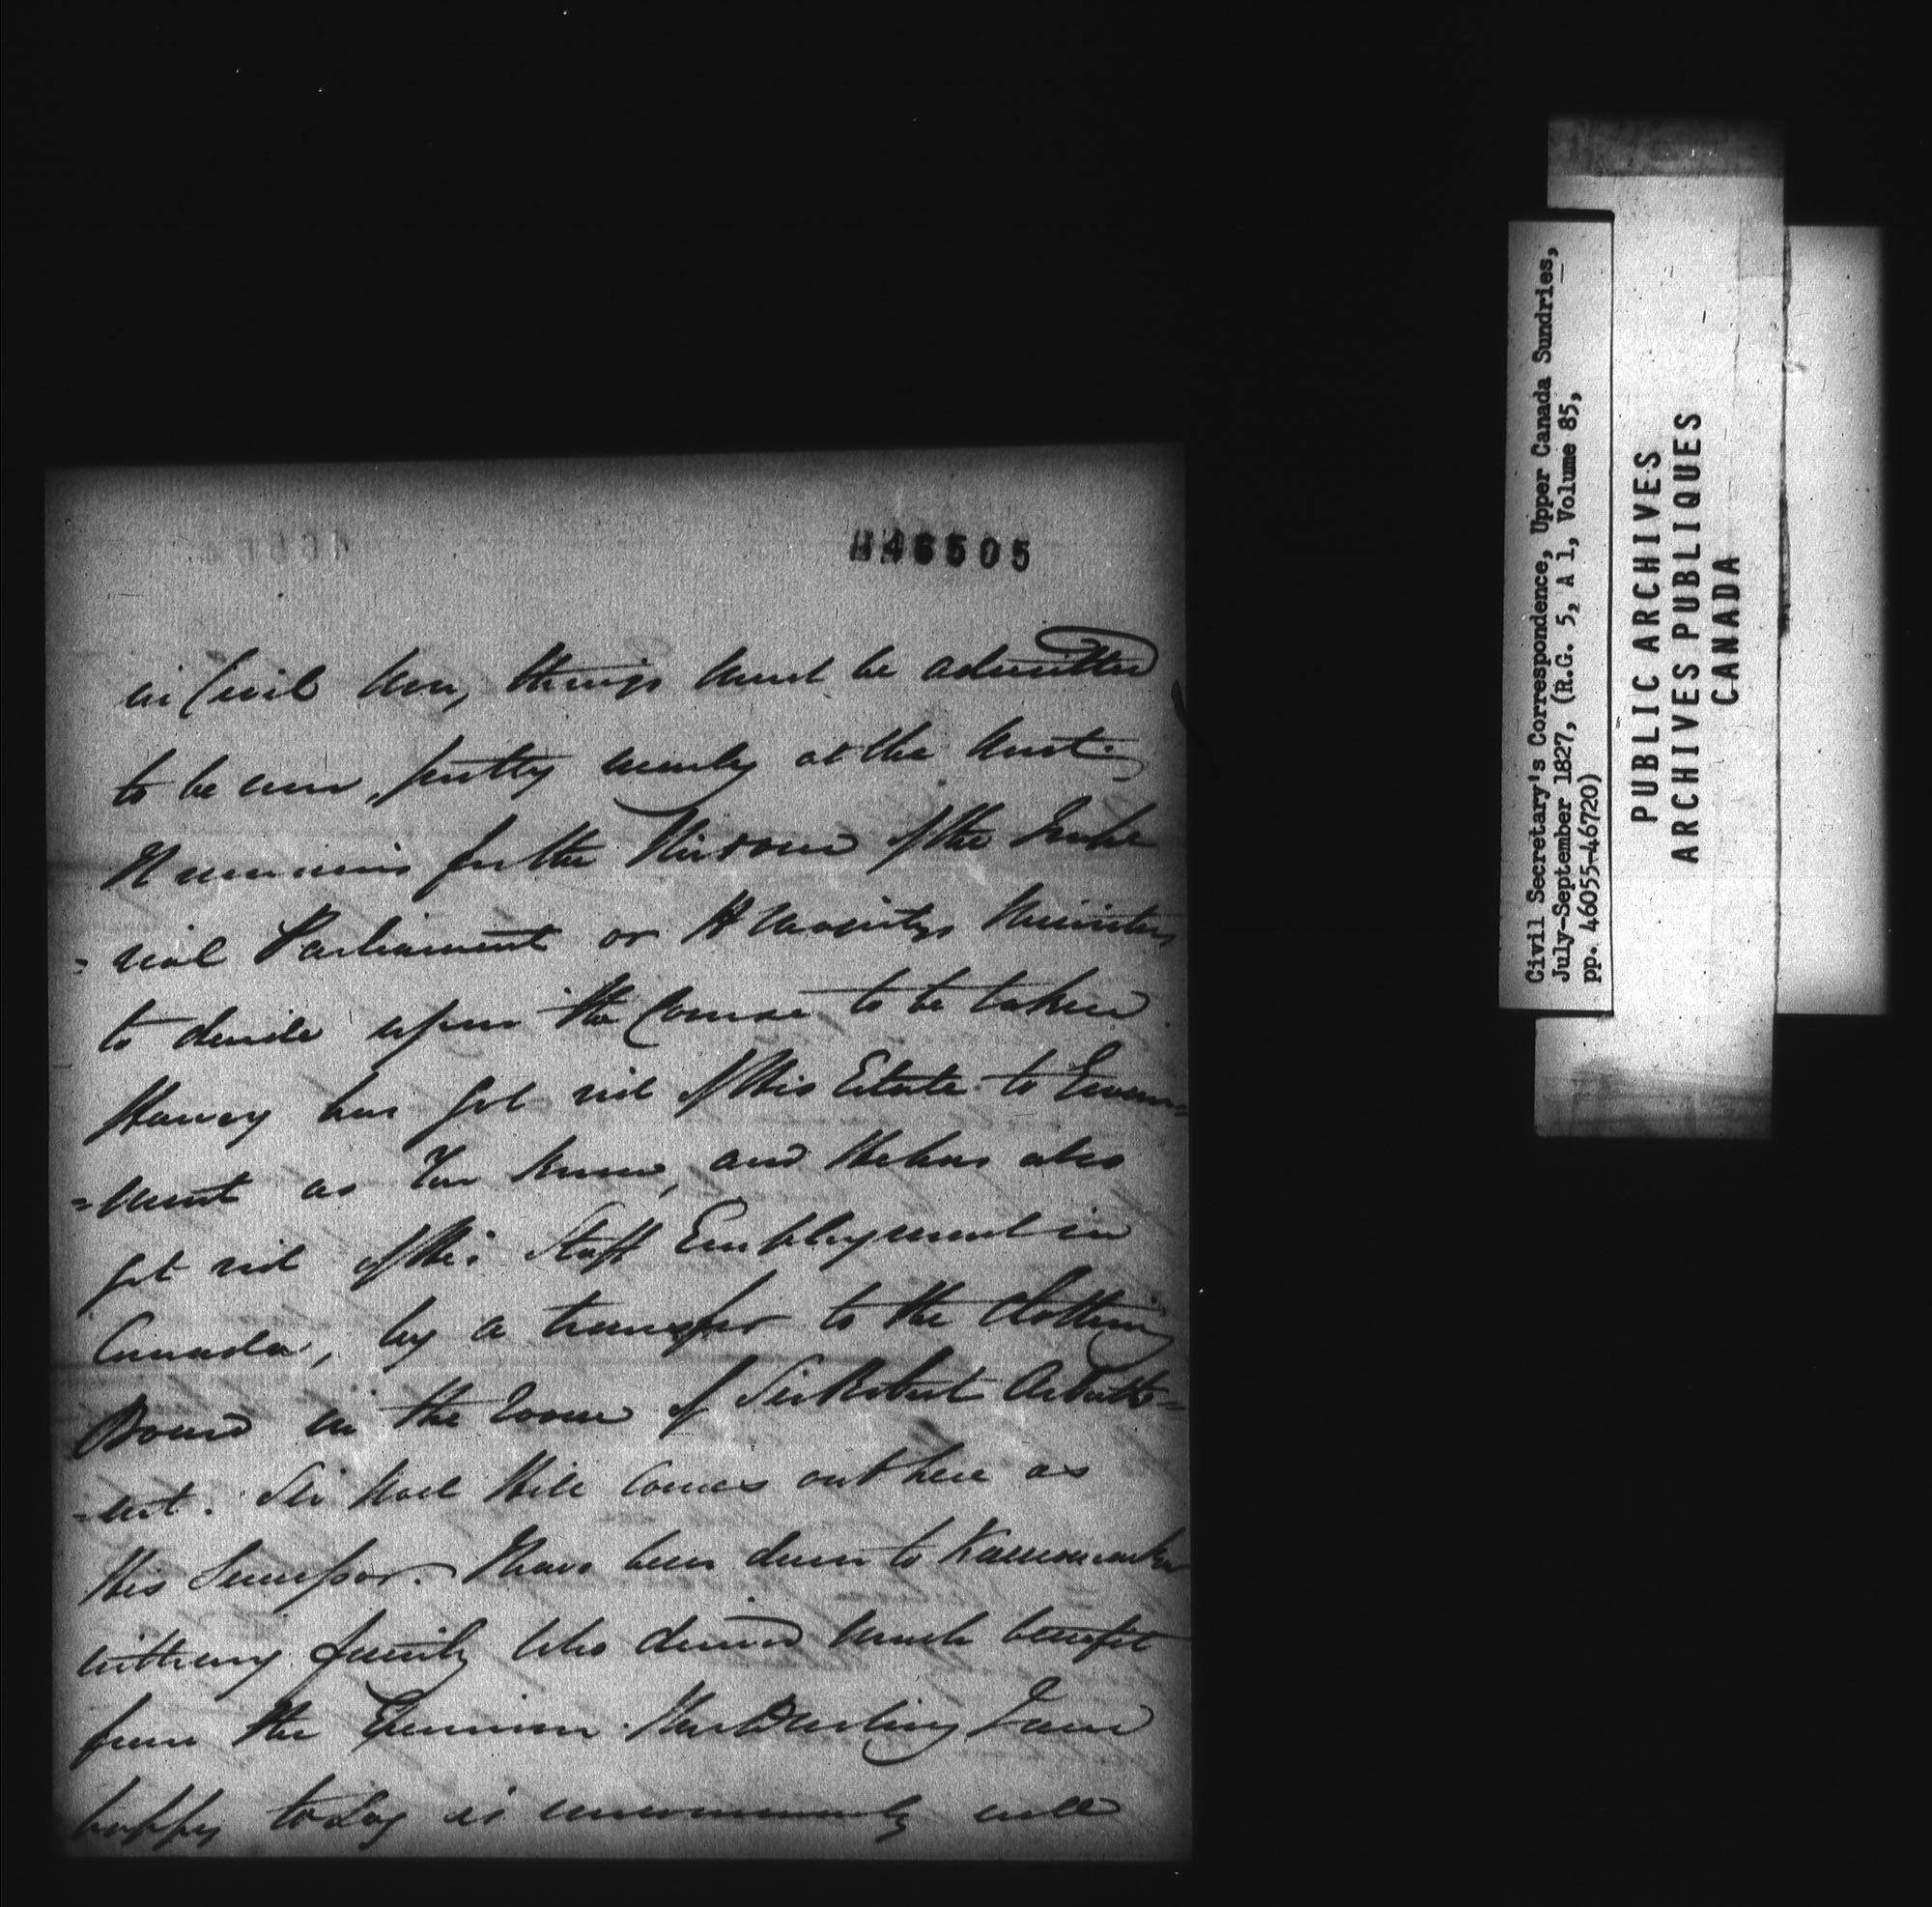 46505
in Civil War, things must be admitted
to be now, pretty nearly at the worst.
It remains for the Wisdom of the Impe
=rial Parliament or H Majestys Ministers
to decide upon the Course to be taken
Harvey has got rid of His Estate to Govern=
=ment as You know, and He has also
got rid of His Staff Employment in
Canada, by a transfer to the Clothing
Board in the room of Sir Robert Arbuth=
=not. Sir Noel Hill Comes out here as
His Successor. I have been down to Kamouraska
with my family who derived much benefit
from the Excursion. Mrs Darling I am
happy to say is uncommonly well
Civil Secretary's Correspondence, Upper Canada Sundries,
July-September 1827, (R.G. 5, A 1, Volume 85,
pp. 46055-46720)
PUBLIC ARCHIVES
ARCHIVES PUBLIQUES
CANADA